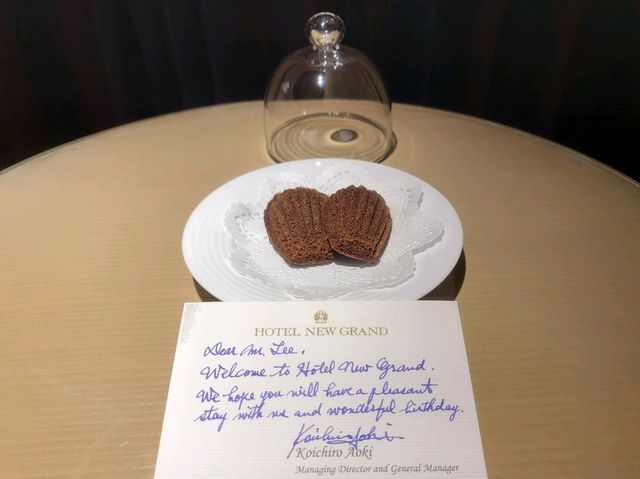 HOTEL NEW GRAND
Dear Mr. Lee,
Welcome to Hotel New Grand.
We hope you will have a pleasant
stay with us and wonderful birthday.
Koichiro Aoki
Koichiro Aoki
Managing Director and General Manager